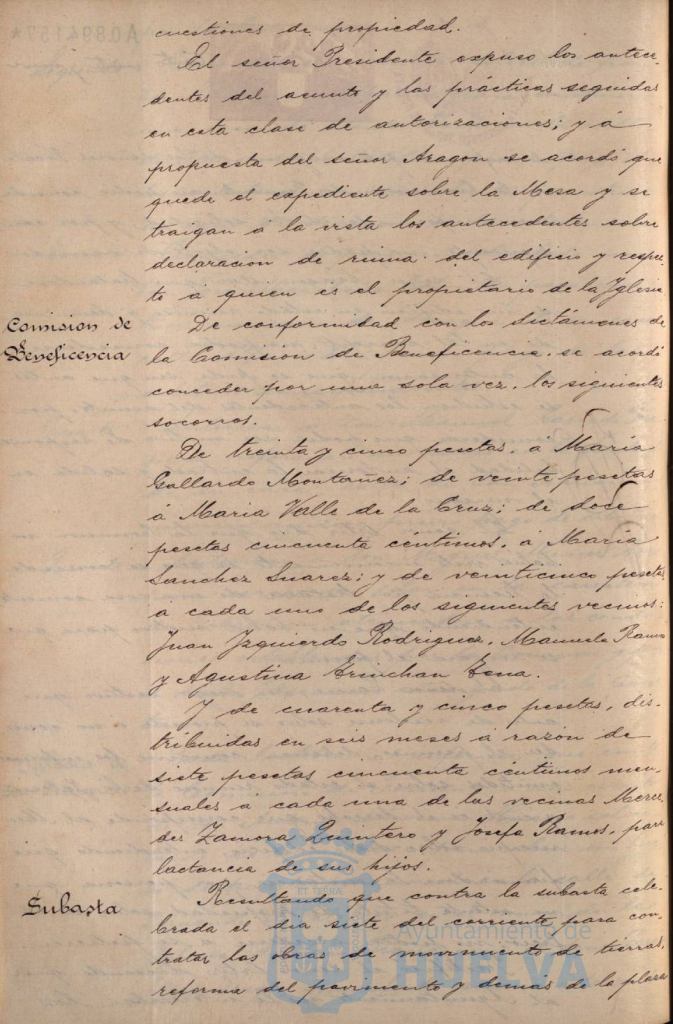 cuestiones de propiedad.
El señor Presidente expuso los antece-
dentes del asunto y las prácticas seguidas
en esta clase de autorizaciones; y á
propuesta del señor Aragon se acordó que
quede el expediente sobre la Mesa y se
traigan á la vista los antecedentes sobre
declaracion de ruina del edificio y respec-
to á quien es el propietario de la Iglesia
Comision de
Beneficencia
De conformidad con los dictámenes de
la Comision de Beneficencia, se acordó
conceder por una sola vez, los siguientes
socorros.
De treinta y cinco pesetas, á María
Gallardo Montañez; de veinte pesetas
á Maria Valle de la Cruz; de doce
pesetas cincuenta céntimos, á Maria
Sanchez Suarez; y de veinticinco pesetas
á cada uno de los siguientes vecinos:
Juan Izquierdo Rodriguez, Manuela Ramos
y Agustina
Y de cuarenta y cinco pesetas, dis-
tribuidas en seis meses á razón de
siete pesetas cincuenta céntimos men-
suales á cada una de las vecinas Merce-
des Zamora Quintero y Josefa Ramos, para
lactancia de sus hijos.
Subasta
Resultando que contra la subasta cele-
brada el dia siete del corriente para con-
tratar las obras de movimiento de tierras,
reforma del pavimento y demas de la plaza
Ayuntamiento de
HUELVA